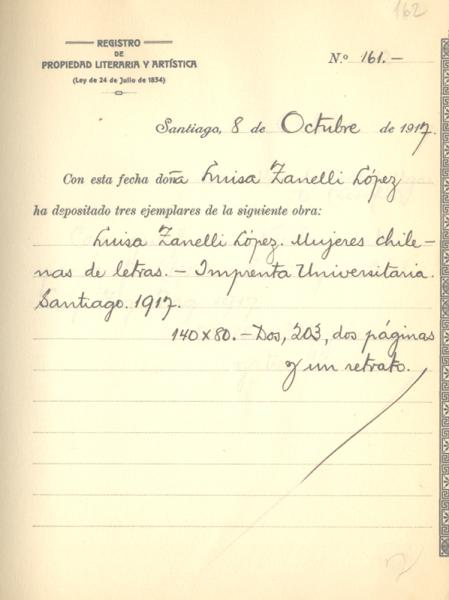 162
REGISTRO
DE
PROPIEDAD LITERARIA Y ARTÍSTICA
(Ley de 24 de Julio de 1834)
N.º 161.-
Santiago, 8 de Octubre de 1917.
Con esta fecha doña Luisa Zanelli López
ha depositado tres ejemplares de la siguiente obra:
Luisa Zanelli López. Mujeres chile-
nas de letras. - Imprenta Universitaria.
Santiago. 1917.
140 x 80. - Dos, 203, dos páginas
y un retrato.